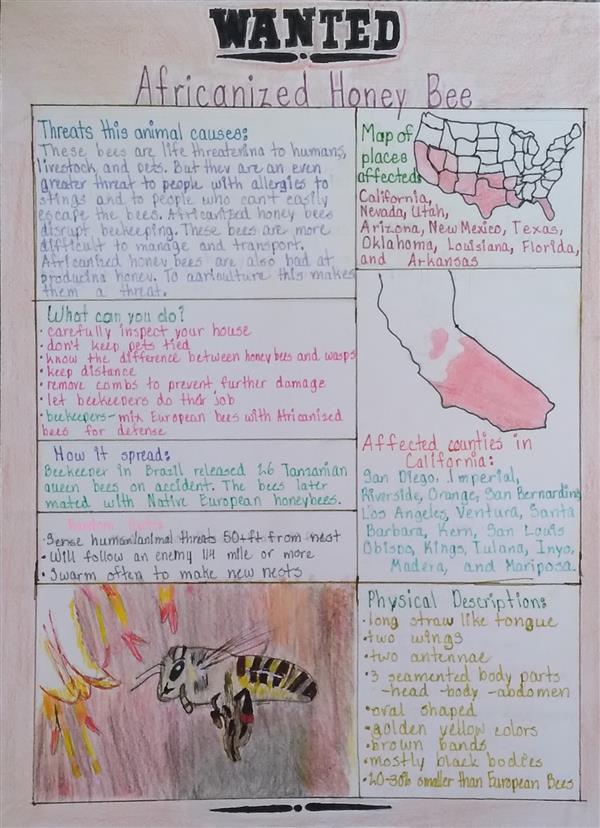 WANTED
Africanized Honey Bee
Threats this animal causes:
These bees are life threatening to humans,
livestock and pets. But they are an even
greater threat to people with allergies to
stings and to people who can't easily
escape the bees. Africanized honey bees
disrupt beekeeping. These bees are more
difficult to manage and transport.
Africanized honey bees are also bad at
producing honey. To agriculture this makes
them a threat.
What can you do?
• carefully inspect your house
• don't keep pets tied
• know the difference between honey bees and wasps
• keep distance
• remove combs to prevent further damage
• let beekeepers do their job
• beekeepers - mix European bees with Africanized
bees for defense
How it spread:
Beekeeper in Brazil released 26 Tanzanian
queen bees on accident. The bees later
mated with Native European honeybees.
Random facts
• Sense human/animal threats 50+ft from nest
• Will follow an enemy 1/4 mile or more
• Swarm often to make new nests
Map of
places
affected:
California,
Nevada, Utah,
Arizona, New Mexico, Texas,
Oklahoma, Louisiana, Florida,
and Arkansas
Affected counties in
California:
San Diego, Imperial,
Riverside, Orange, San Bernardino,
Los Angeles, Ventura, Santa
Barbara, Kern, San Louis
Obispo, Kings, Tulana, Inyo,
Madera, and Mariposa.
Physical Description:
• long straw like tongue
• two wings
• two antennae
• 3 segmented body parts
-head -body -abdomen
• oval shaped
• golden yellow colors
• brown bands
• mostly black bodies
• 20-30% smaller than European Bees